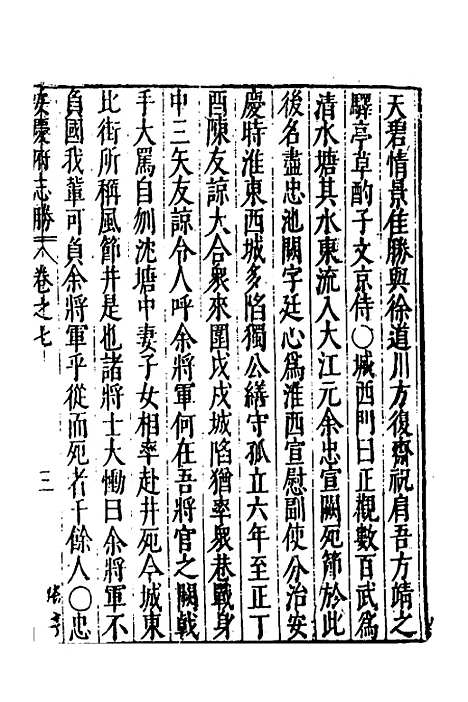 天碧情景佳勝與徐道川方復齋祝肩吾方靖之
驛亭草酌子文京侍○城西門曰正觀數百武爲
清水塘其水東流入大江元余忠宣闕死節於此
後名盡忠池闕字廷心爲淮西宣慰副使分治安
慶時淮東西城多陷獨公繕守孤立六年至正丁
酉陳友諒大合衆來圍戊戌城陷猶率衆巷戰身
中三矢友諒令人呼余將軍何在吾將官之闕戟
手大罵自刎沈塘中妻子女相率赴井死今城東
比街所稱風節井是也諸將士大慟曰余將軍不
負國我軰可負余將軍乎從而死者千餘人○忠
安慶府志勝 卷之七 三